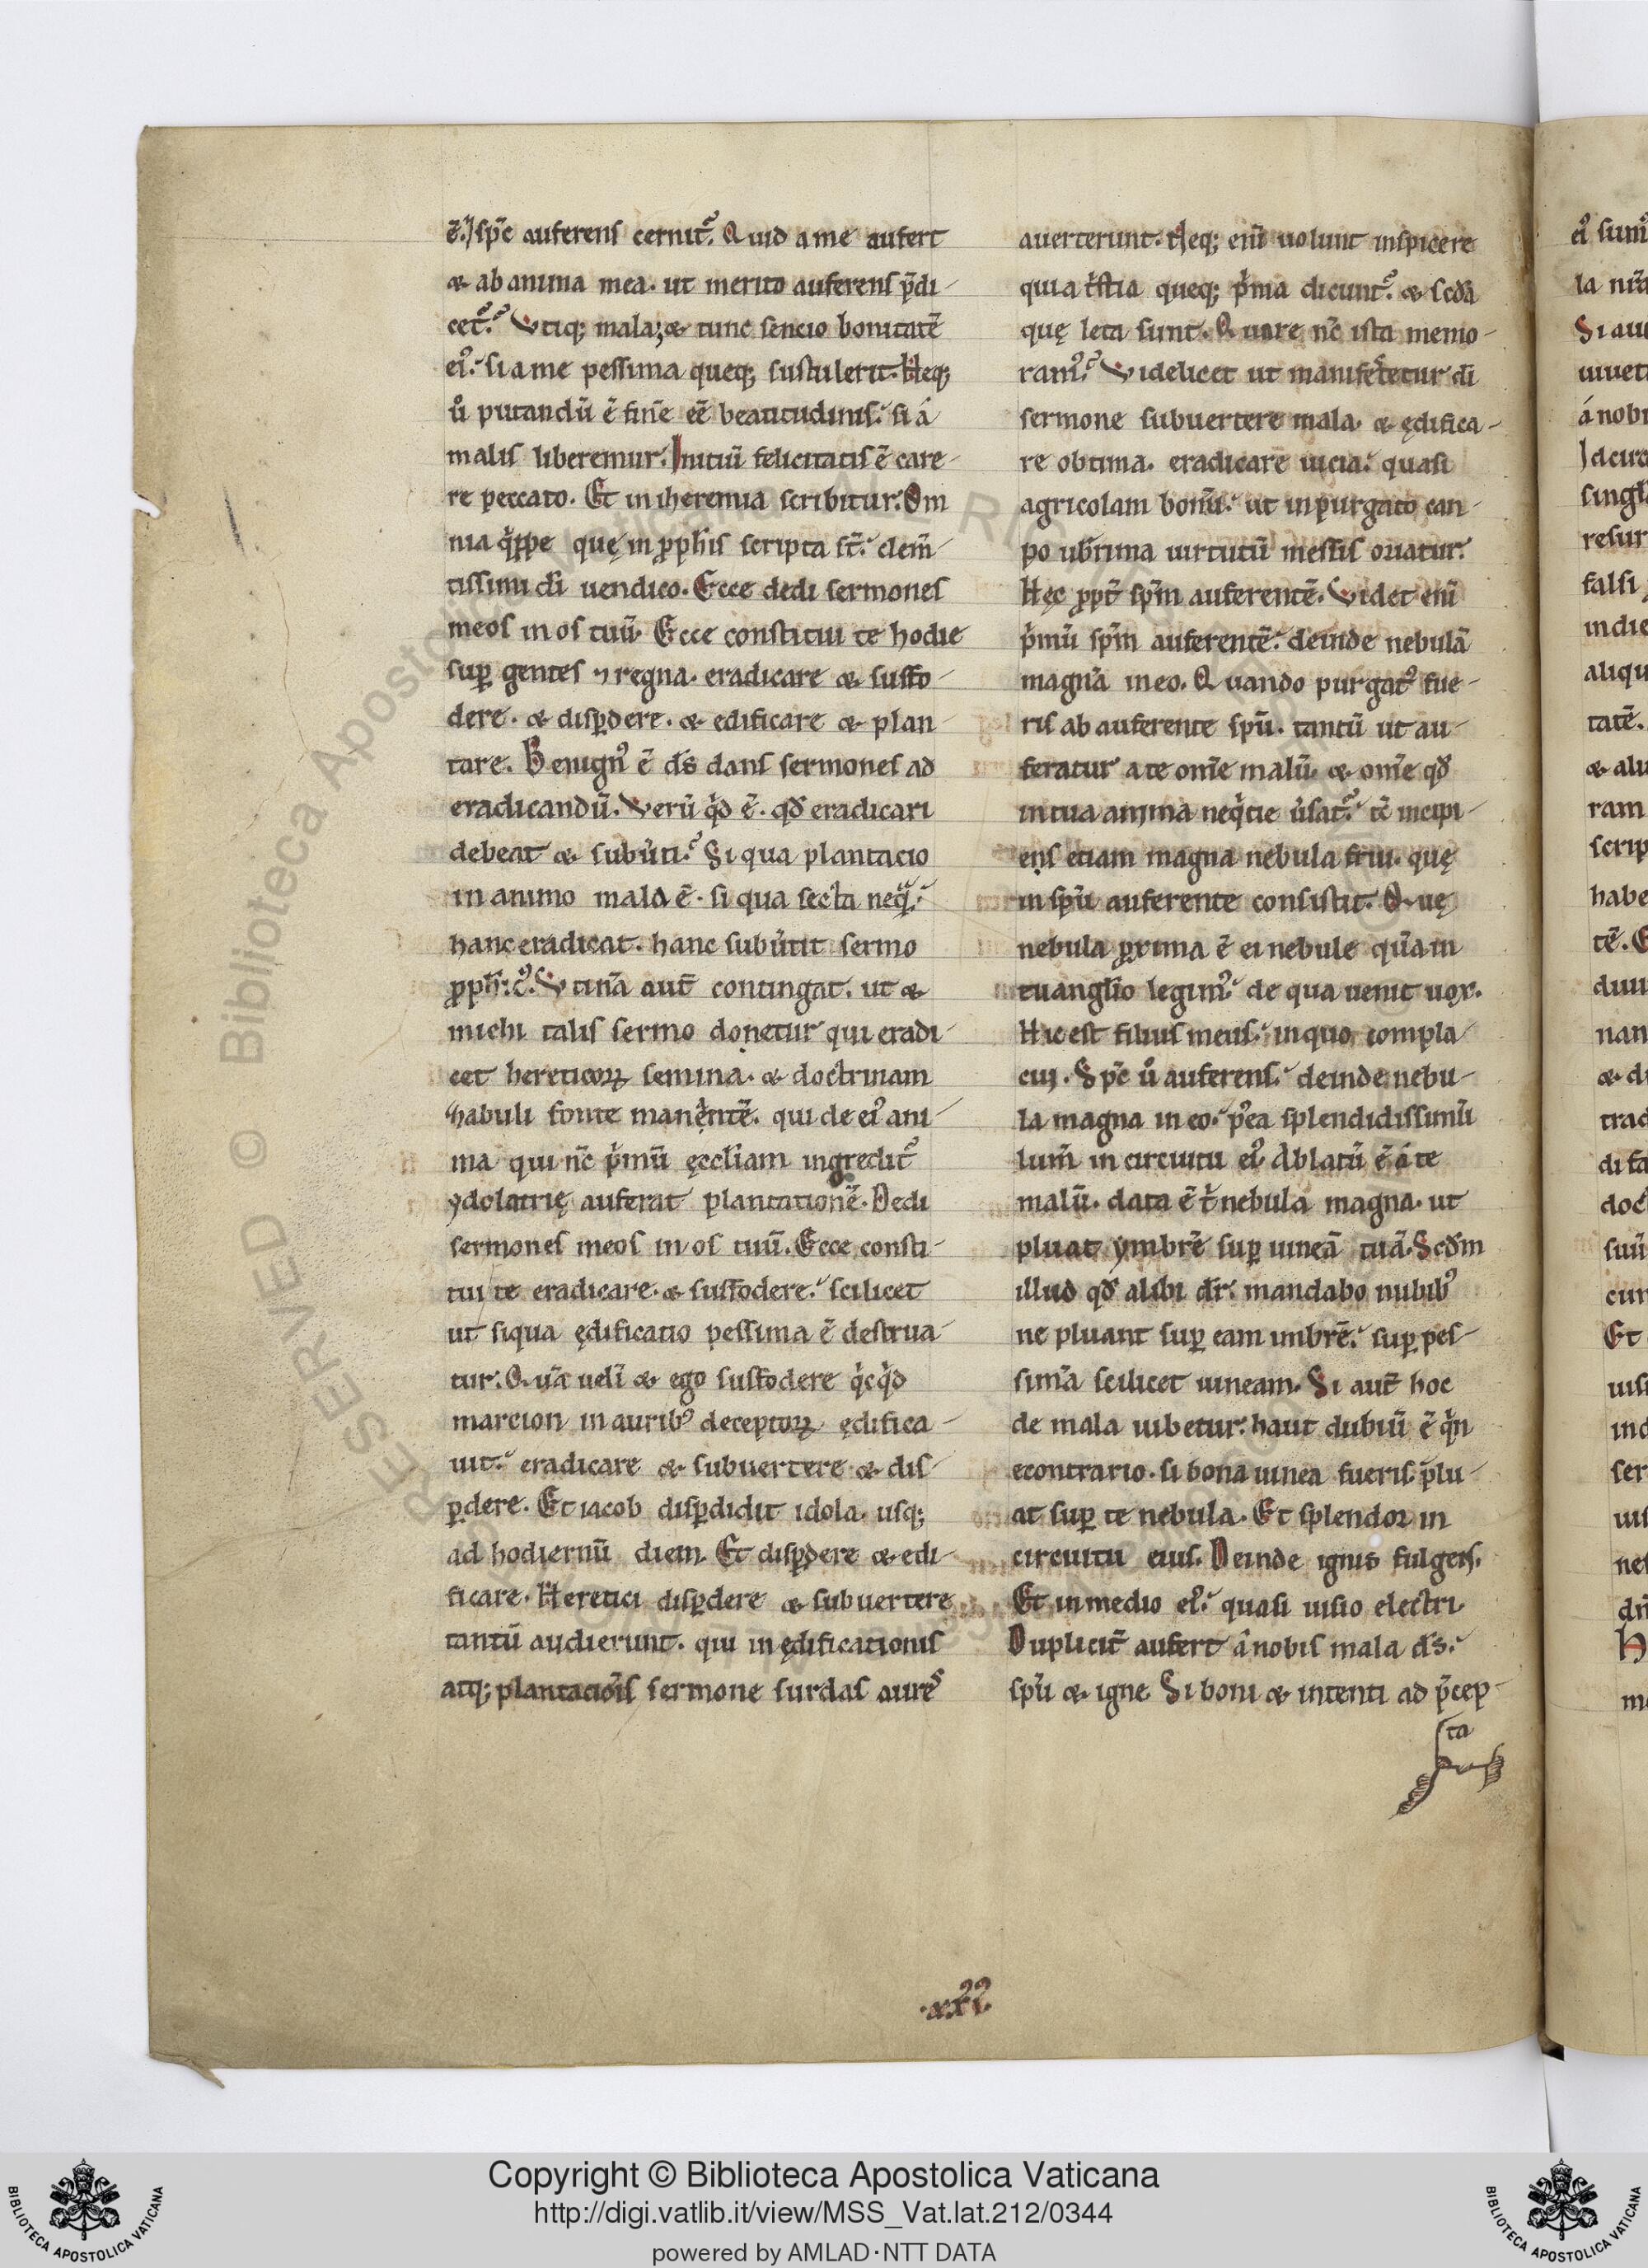 ē. ⁊ sp̄c auferens cernit᷑. Quid a me aufert
& ab anima mea. ut merito auferens p̄di-
cet᷑. Utiq; mala; & tunc sencio bonitatē
eiꝰ. si a me pessima queq; sustulerit. Neq;
u̓ putandū ē finē eē beatitudinis. si á
malis liberemur. Initiū felicitatis ē care-
re peccato. Et in iheremia scribitur. Om
nia q̓ippe quę in ꝓph̄is scripta st̄. clem̄-
tissimi dī uendico. Ecce dedi sermones
meos in os tuū. Ecce constitui te hodie
suꝑ gentes ⁊ regna. eradicare & suffo-
dere. & disꝑdere. & edificare & plan-
tare. Benignꝰ ē ds̄ dans sermones ad
eradicandū. Verū q̓d ē. qđ eradicari
debeat & subu̓ti. Si qua plantacio
in animo mala ē. si qua secta neq̓.
hanc eradicat. hanc subu̓tit sermo
ꝓph̄icꝰ. Utinā aut̄ contingat. ut &
michi talis sermo donetur qui eradi-
cet hereticoꝝ semina. & doctrinam
habuli fonte manentē. qui de eiꝰ ani-
ma qui nc̄ p̓mū ęccl̄iam ingredit᷑
ydolatrię auferat plantationē. Dedi
sermones meos in os tuū. Ecce consti-
tui te eradicare. & suffodere. scilicet
ut siqua ędificatio pessima ē destrua-
tur. Quā uelī & ego suffodere q̓cq̓d
marcion in auribꝰ deceptoꝝ ędifica-
uit. eradicare & subuertere & dis-
ꝑdere. Et iacob disꝑdidit idola. usq;
ad hodiernū diem. Et disꝑdere & edi-
ficare. Heretici disꝑdere & subuertere
tantū audierunt. qui in ędificationis
atq; plantaciōis sermone surdas aures
auerterunt. Neq; enī uolunt inspicere
quia tr̓stia queq; p̓ma dicunt᷑. & scđa
quę leta sunt. Quare nc̄ ista memo-
ramꝰ. Videlicet ut manifestetur dī
sermone subuertere mala. & ędifica-
re obtima. eradicare uicia. quasi
agricolam bonū. ut in purgato can-
po ub̓rima uirtutū messis oriatur.
Hęc ꝓpt̄ sp̄m auferentē. Videt enī
p̓mū sp̄m auferentē. deinde nebulā
magnā in eo. Quando purgatꝰ fue-
ris ab auferente sp̄u. tantū ut au-
feratur a te om̄e malū. & om̄e qđ
in tua anima neq̓tie u̓sat᷑. tc̄ incipi-
ens etiam magna nebula frui. quę
in sp̄u auferente consistit. Quę
nebula ꝓxima ē ei nebule quā in
euanglīo legimꝰ. de qua uenit uox.
Hic est filius meus. in quo compla-
cui. Sp̄c u̓ auferens. deinde nebu-
la magna in eo. pꝰea splendidissimū
lum̄ in circuitu eiꝰ. Ablatū ē á te
malū. data ē t̓ nebula magna. ut
pluat ymbrē suꝑ uineā tuā. Scđm
illud qđ alibi dr̄. mandabo nubibꝰ
ne pluant suꝑ eam imbrē. suꝑ pes-
simā scilicet uineam. Si aut̄ hoc
de mala iubetur. haut dubiū ē q̓n
econtrario. si bona uinea fueris. plu-
at suꝑ te nebula. Et splendor in
circuitu eius. Deinde ignis fulgens.
Et in medio eiꝰ. quasi uisio electri.
Duplicit̄ aufert á nobis mala ds̄.
sp̄u & igne. Si boni & intenti ad p̄cep-
ta
.xxi.
RESERVED © Biblioteca Apostolica Vaticana
Copyright © Biblioteca Apostolica Vaticana
http://digi.vatlib.it/view/MSS_Vat.lat.212/0344
powered by AMLAD·NTT DATA
BIBLIOTECA APOSTOLICA VATICANA
BIBLIOTECA APOSTOLICA VATICANA